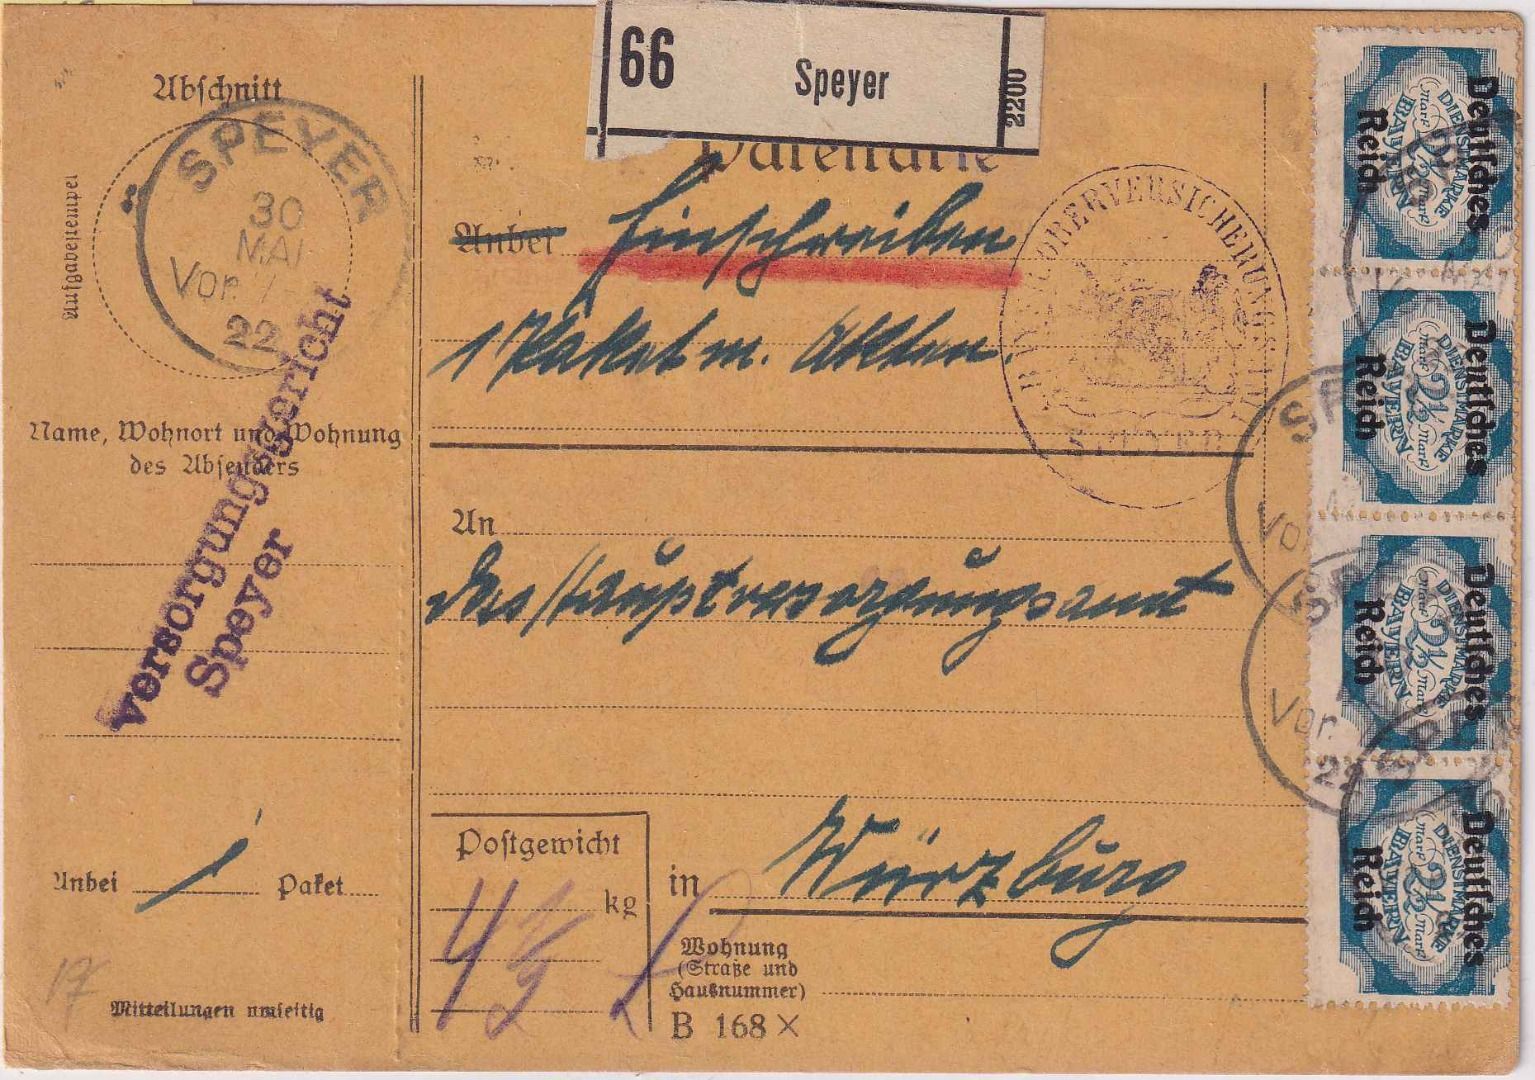 66
Speyer
2200
Abschnitt
SPEYER
30
MAI
Vor. 7
22
Aufgabestempel
Versorgungsgericht
Speyer
Name, Wohnort und Wohnung
des Absenders
Anbei 1 Paket
17
Mitteilungen umseitig
Paketkarte
Anbei Einschreiben
1 Paket m. Akten.
BAYR. OBERVERSICHERUNGS
SPEYER
An
das Hauptversorgungsamt
Postgewicht
kg
4 1/2
in Würzburg
Wohnung
(Straße und
Hausnummer)
B 168 X
Deutsches
Reich
DIENSTMARKE
2½
Mark
BAYERN
Deutsches
Reich
DIENSTMARKE
2½
Mark
BAYERN
Deutsches
Reich
DIENSTMARKE
2½
Mark
BAYERN
Deutsches
Reich
DIENSTMARKE
2½
Mark
BAYERN
Vor.
Vor.
22